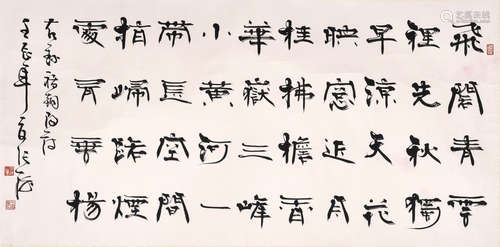 飛閣青雲
裡先秋獨
早涼天花
映窗近月
桂拂檐香
華嶽三峰
小黃河一
帶長空間
指歸路煙
處有垂楊
右錄褚朝陽詩
年